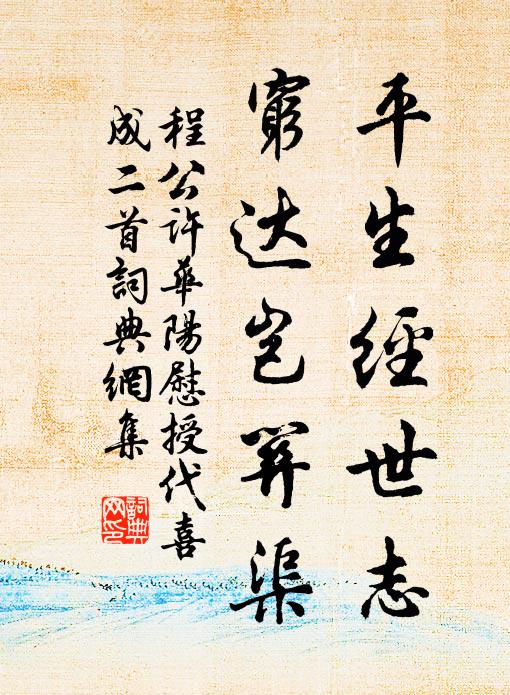 平生經世志
窮达岂關渠
程公许華陽慰授代喜
成二首詞典網集
詞典
网印